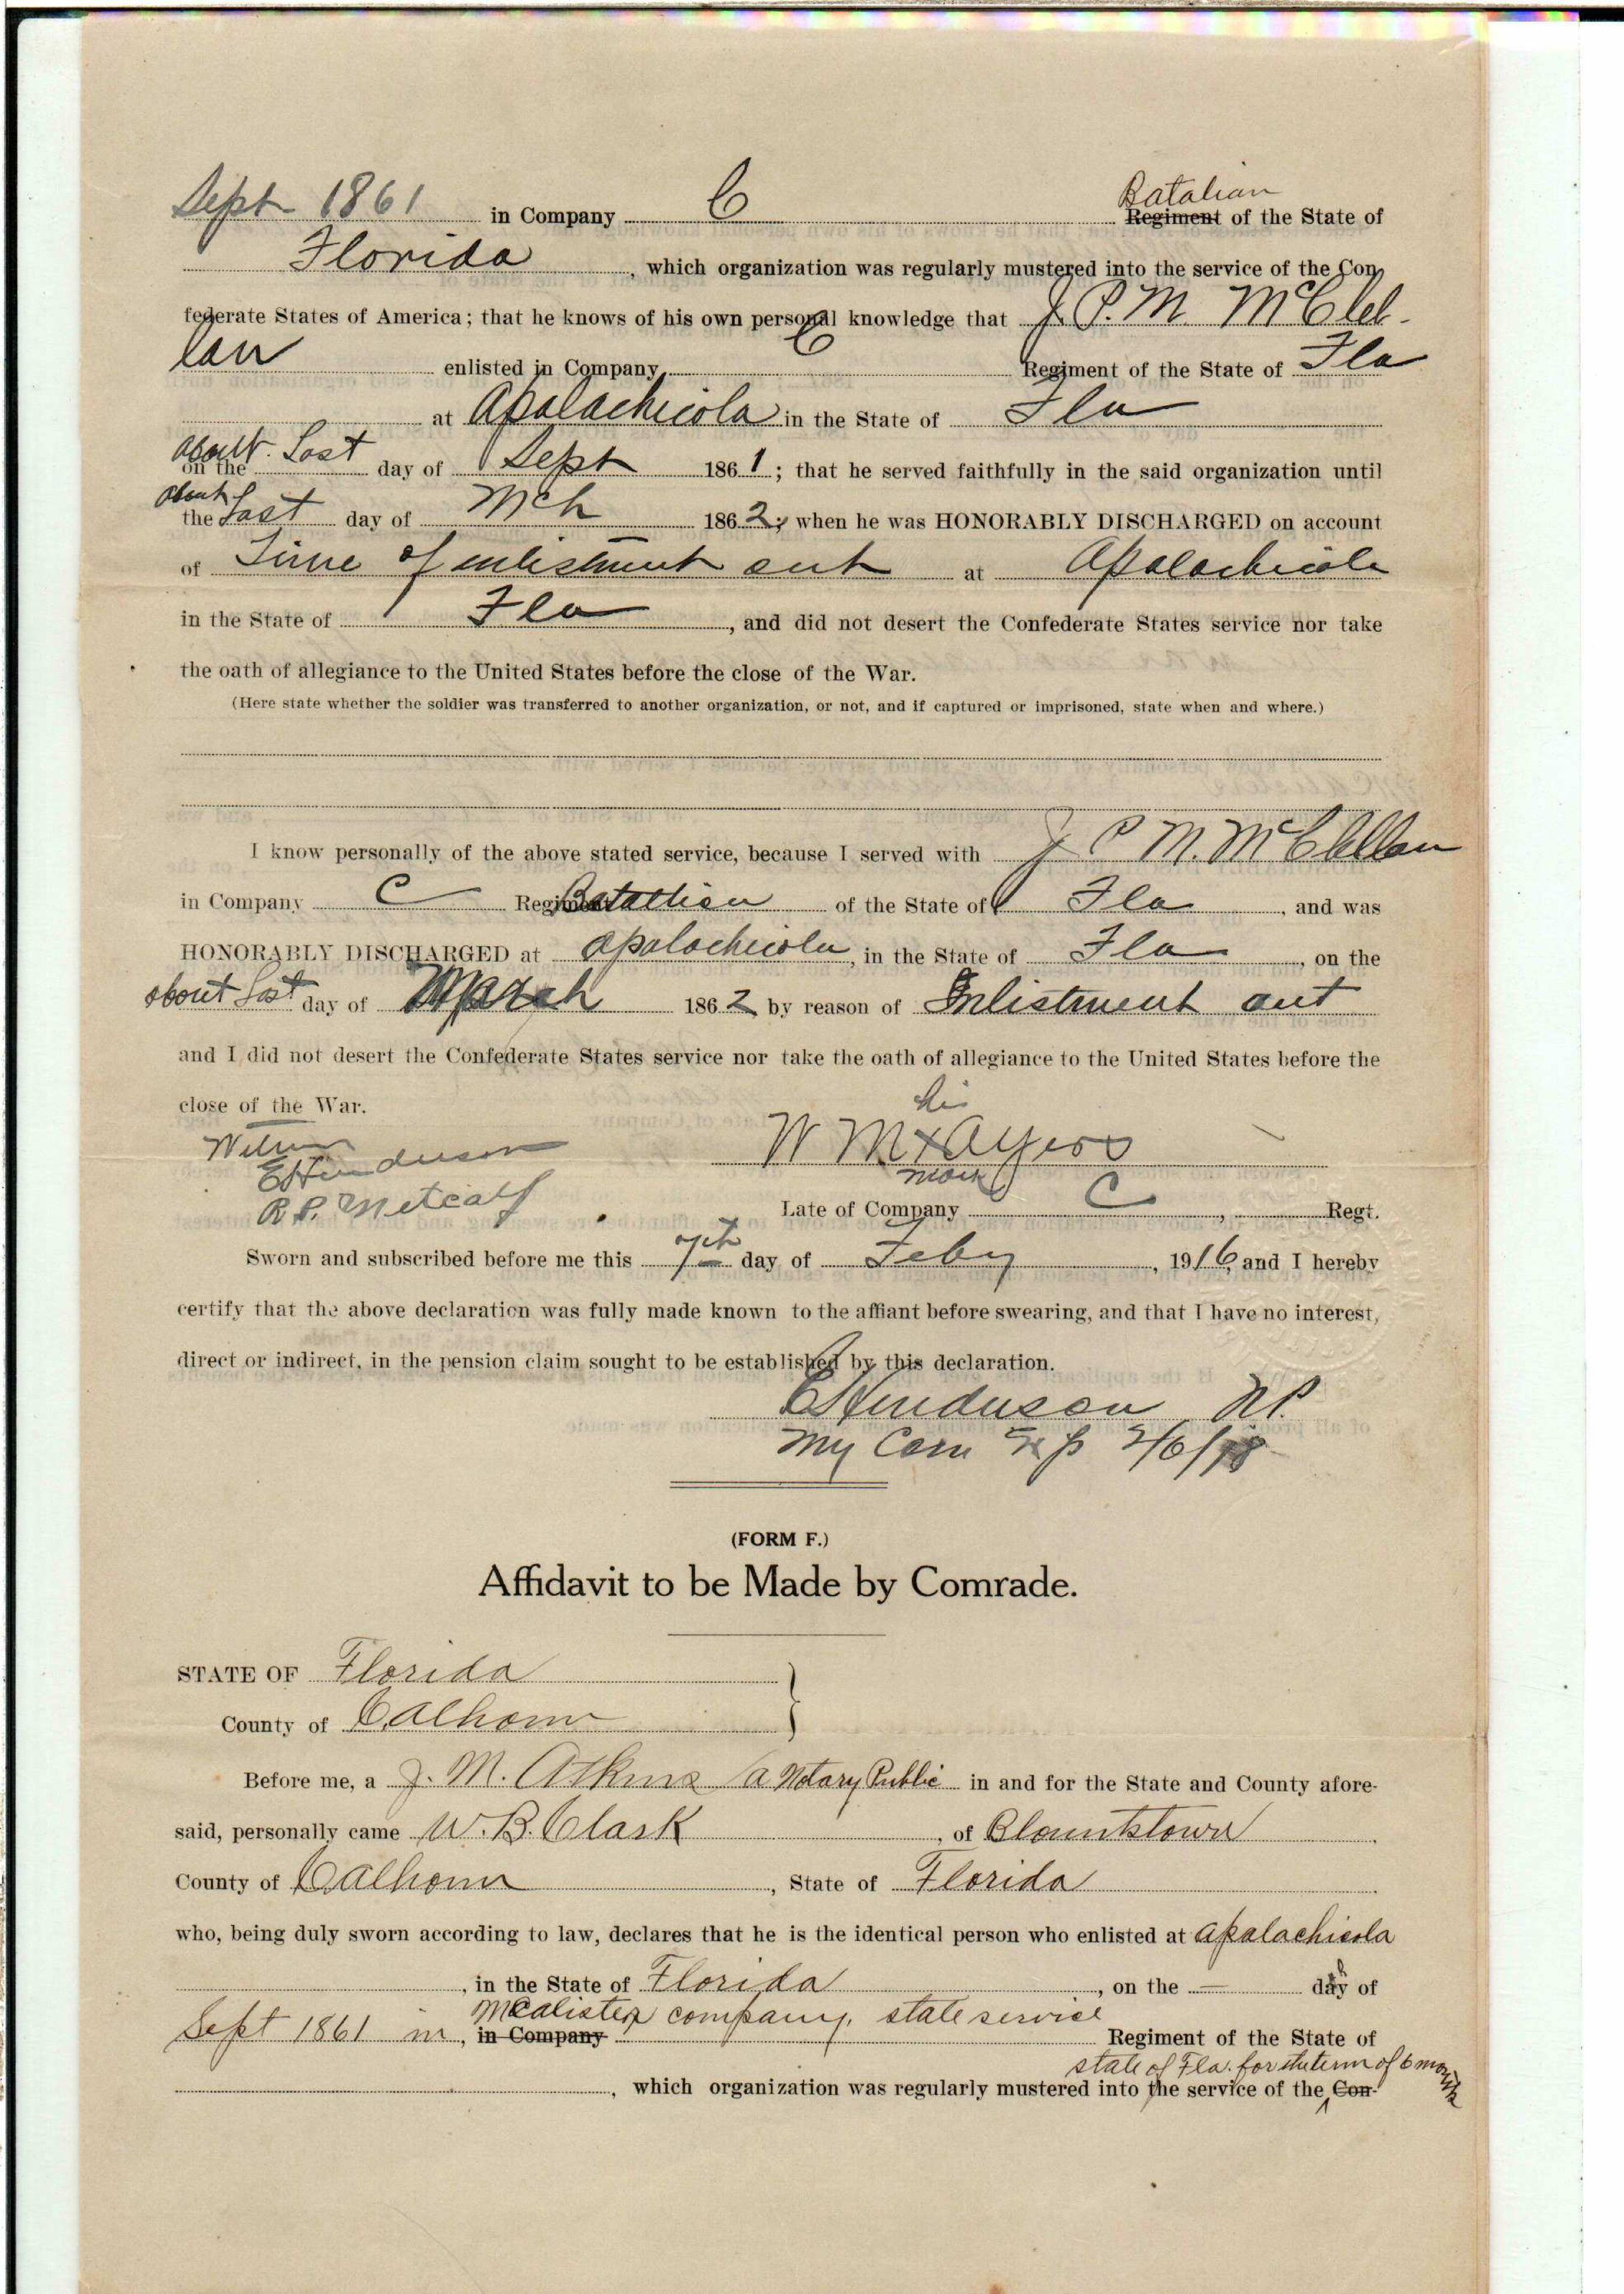 Sept 1861 in Company C Batalian Regiment of the State of
Florida, which organization was regularly mustered into the service of the Con
federate States of America; that he knows of his own personal knowledge that J. P. M. McClel-
lan enlisted in Company C Regiment of the State of Fla
at Apalachicola in the State of Fla
about on the Last day of Sept 1861; that he served faithfully in the said organization until
about the Last day of Mch 1862; when he was HONORABLY DISCHARGED on account
of Time of enlistment out at Apalachicola
in the State of Fla, and did not desert the Confederate States service nor take
the oath of allegiance to the United States before the close of the War.
(Here state whether the soldier was transferred to another organization, or not, and if captured or imprisoned, state when and where.)
I know personally of the above stated service, because I served with J P M. McClellan
in Company C Regiment Batallion of the State of Fla, and was
HONORABLY DISCHARGED at Apalachicola, in the State of Fla, on the
about Last day of March 1862 by reason of Enlistment out
and I did not desert the Confederate States service nor take the oath of allegiance to the United States before the
close of the War.
his
W M x Ayers
mark
E Henderson
R. P. Metcalf
Late of Company C, Regt.
Sworn and subscribed before me this 7th day of Feby, 1916, and I hereby
certify that the above declaration was fully made known to the affiant before swearing, and that I have no interest,
direct or indirect, in the pension claim sought to be established by this declaration.
E Henderson N.P.
My Com Exp 2/6/18
(FORM F.)
Affidavit to be Made by Comrade.
STATE OF Florida
County of Calhoun
Before me, a J. M. Atkins a Notary Public in and for the State and County afore-
said, personally came W. B. Clark, of Blountstown
County of Calhoun, State of Florida
who, being duly sworn according to law, declares that he is the identical person who enlisted at Apalachicola
, in the State of Florida, on the — day of
Sept 1861 in, in Company McAlister company, state service Regiment of the State of
state of Fla. for the term of 6 months
, which organization was regularly mustered into the service of the Con-